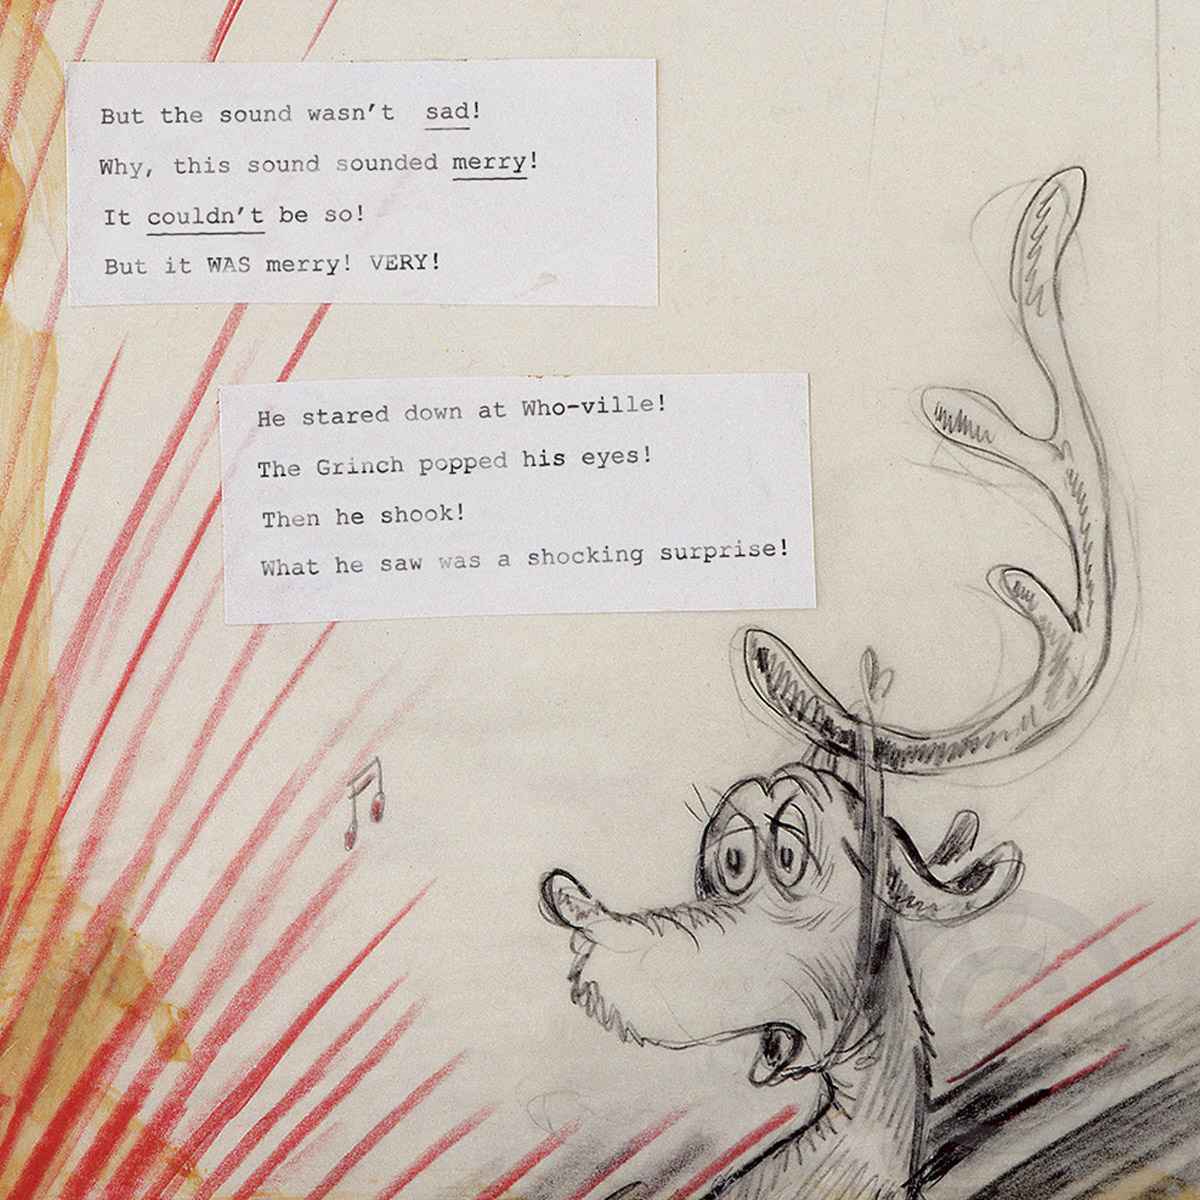 But the sound wasn't sad!
Why, this sound sounded merry!
It couldn't be so!
But it WAS merry! VERY!
He stared down at Who-ville!
The Grinch popped his eyes!
Then he shook!
What he saw was a shocking surprise!